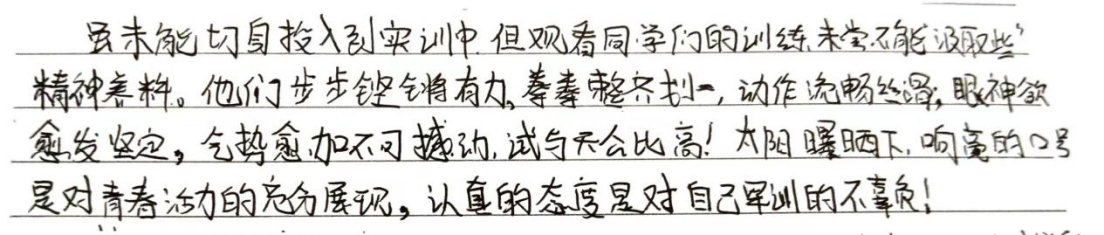 虽未能切身投入到实训中,但观看同学们的训练未尝不能汲取些
精神养料。他们步步铿锵有力,拳拳整齐划一,动作流畅丝滑,眼神欲
愈发坚定,气势愈加不可撼动,试与天公比高!太阳曝晒下,响亮的口号
是对青春活力的充分展现,认真的态度是对自己军训的不辜负!